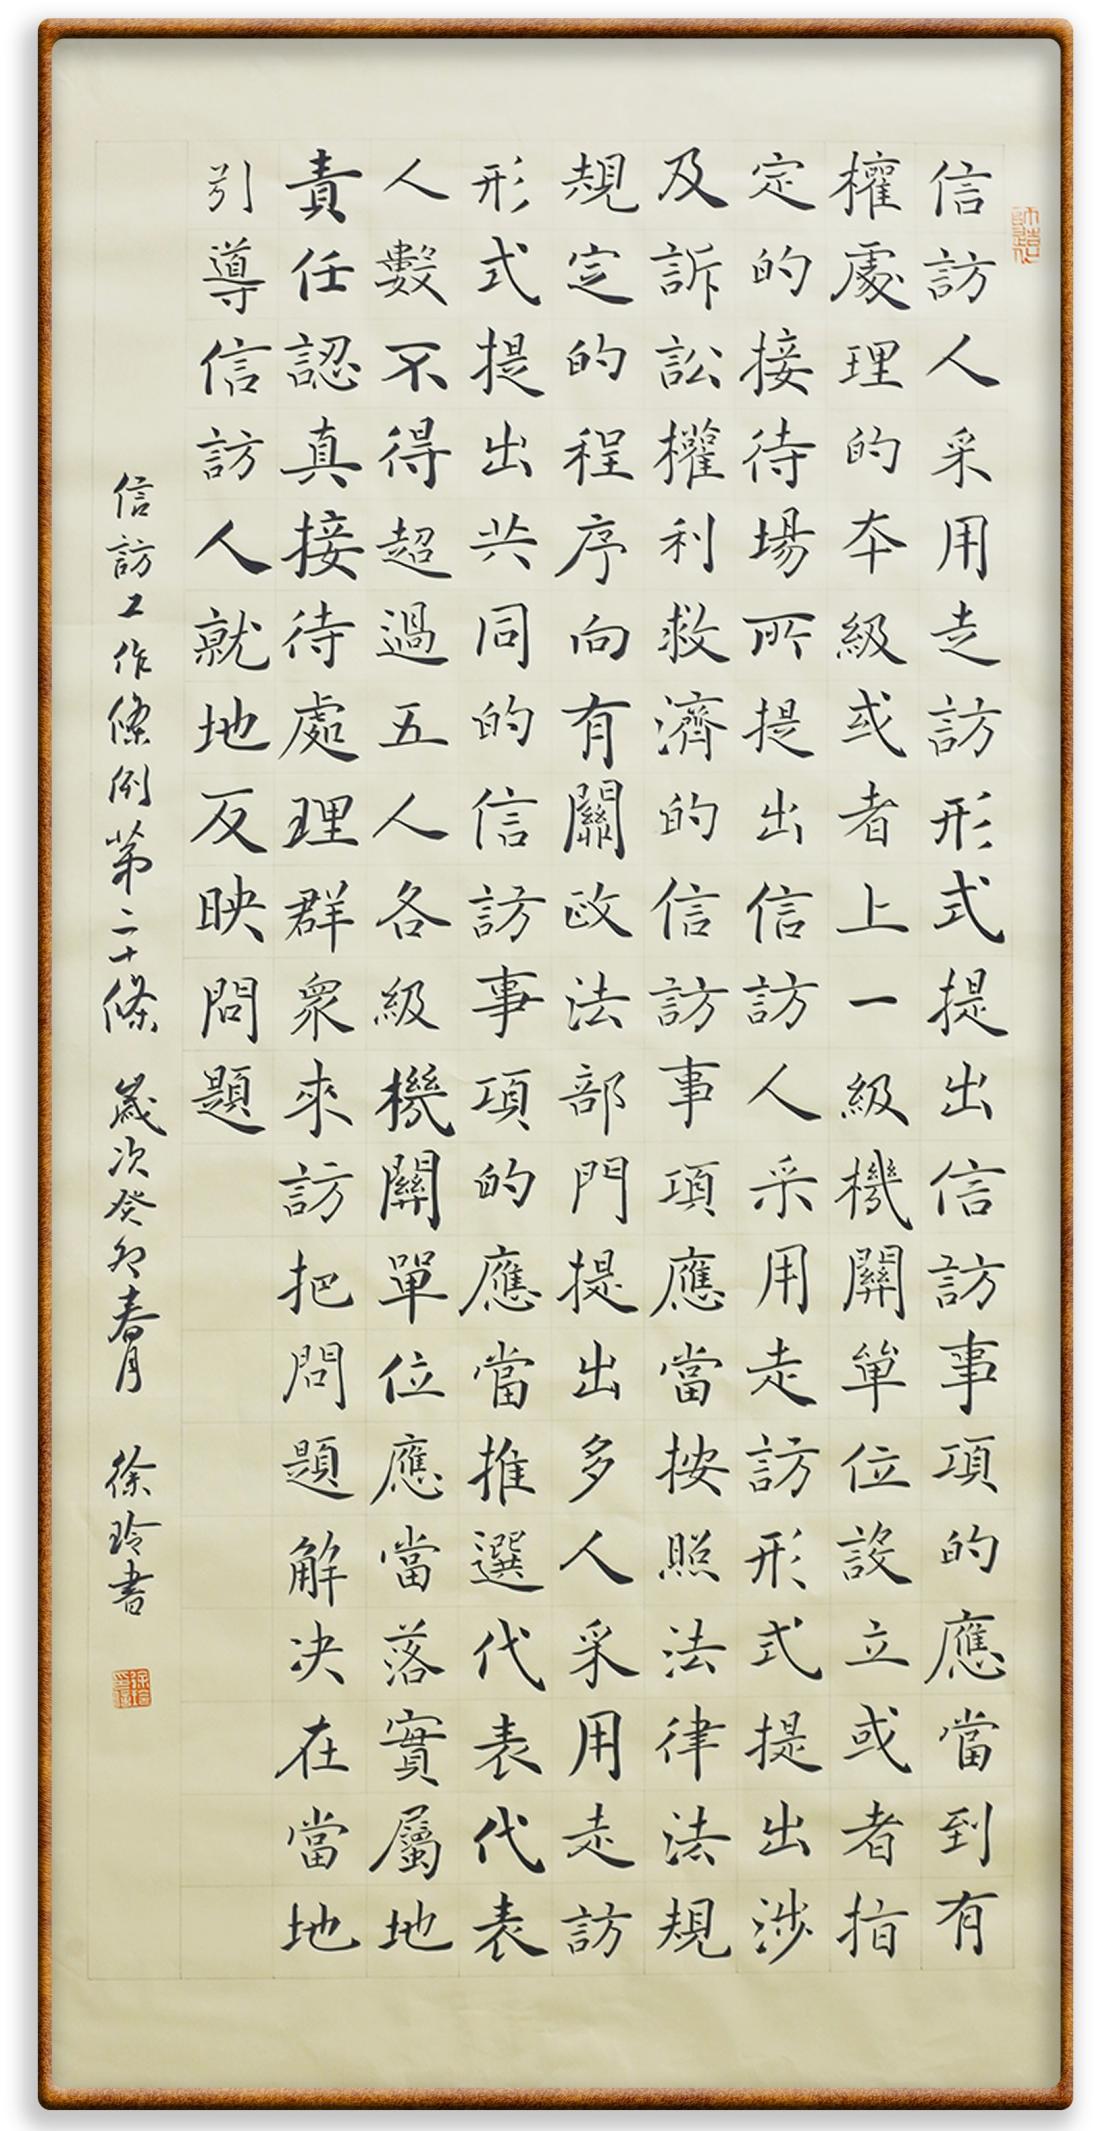 信訪人采用走訪形式提出信訪事項的應當到有
權處理的本級或者上一級機關單位設立或者指
定的接待場所提出信訪人采用走訪形式提出涉
及訴訟權利救濟的信訪事項應當按照法律法規
規定的程序向有關政法部門提出多人采用走訪
形式提出共同的信訪事項的應當推選代表代表
人數不得超過五人各級機關單位應當落實屬地
責任認真接待處理群衆來訪把問題解决在當地
引導信訪人就地反映問題
信訪工作條例第二十條 歲次癸卯春月 徐玲書